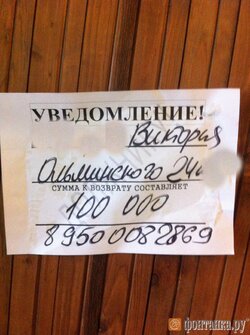 УВЕДОМЛЕНИЕ!
Виктория
Ольминского 24
СУММА К ВОЗВРАТУ СОСТАВЛЯЕТ
100 000
89500082869
фонтанка.ру